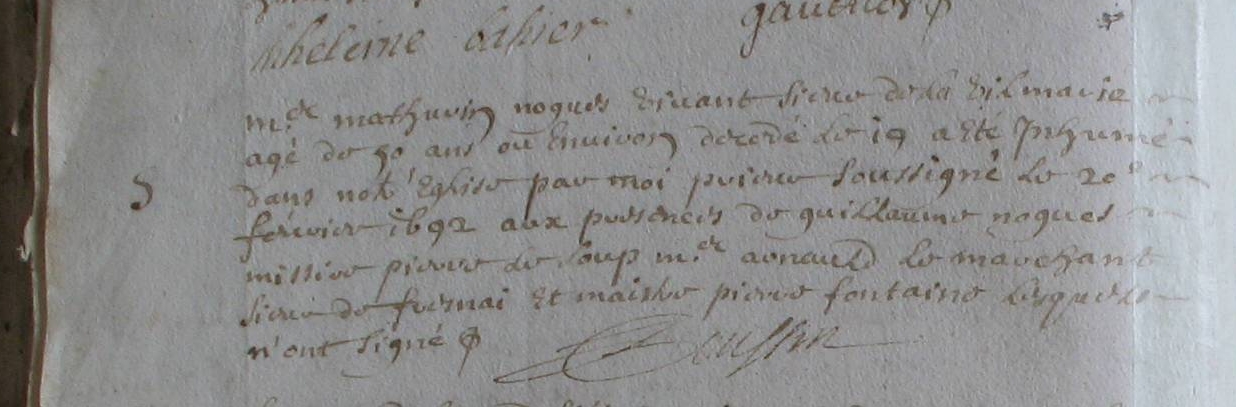 gautier
heleine cahier
S
m.re mathurin noques vivant sieur de la vilmarie
agé de 50 ans ou Environ decedé le 19 a Esté Inhumé
dans not' Eglise par moi prieur soussigné le 20e
fevrier 1692 aux presences de guillaume noques
missire pierre le loup m.re arnauld le marchant
sieur de fresnai Et maistre pierre fontaine lesquels
n'ont signé